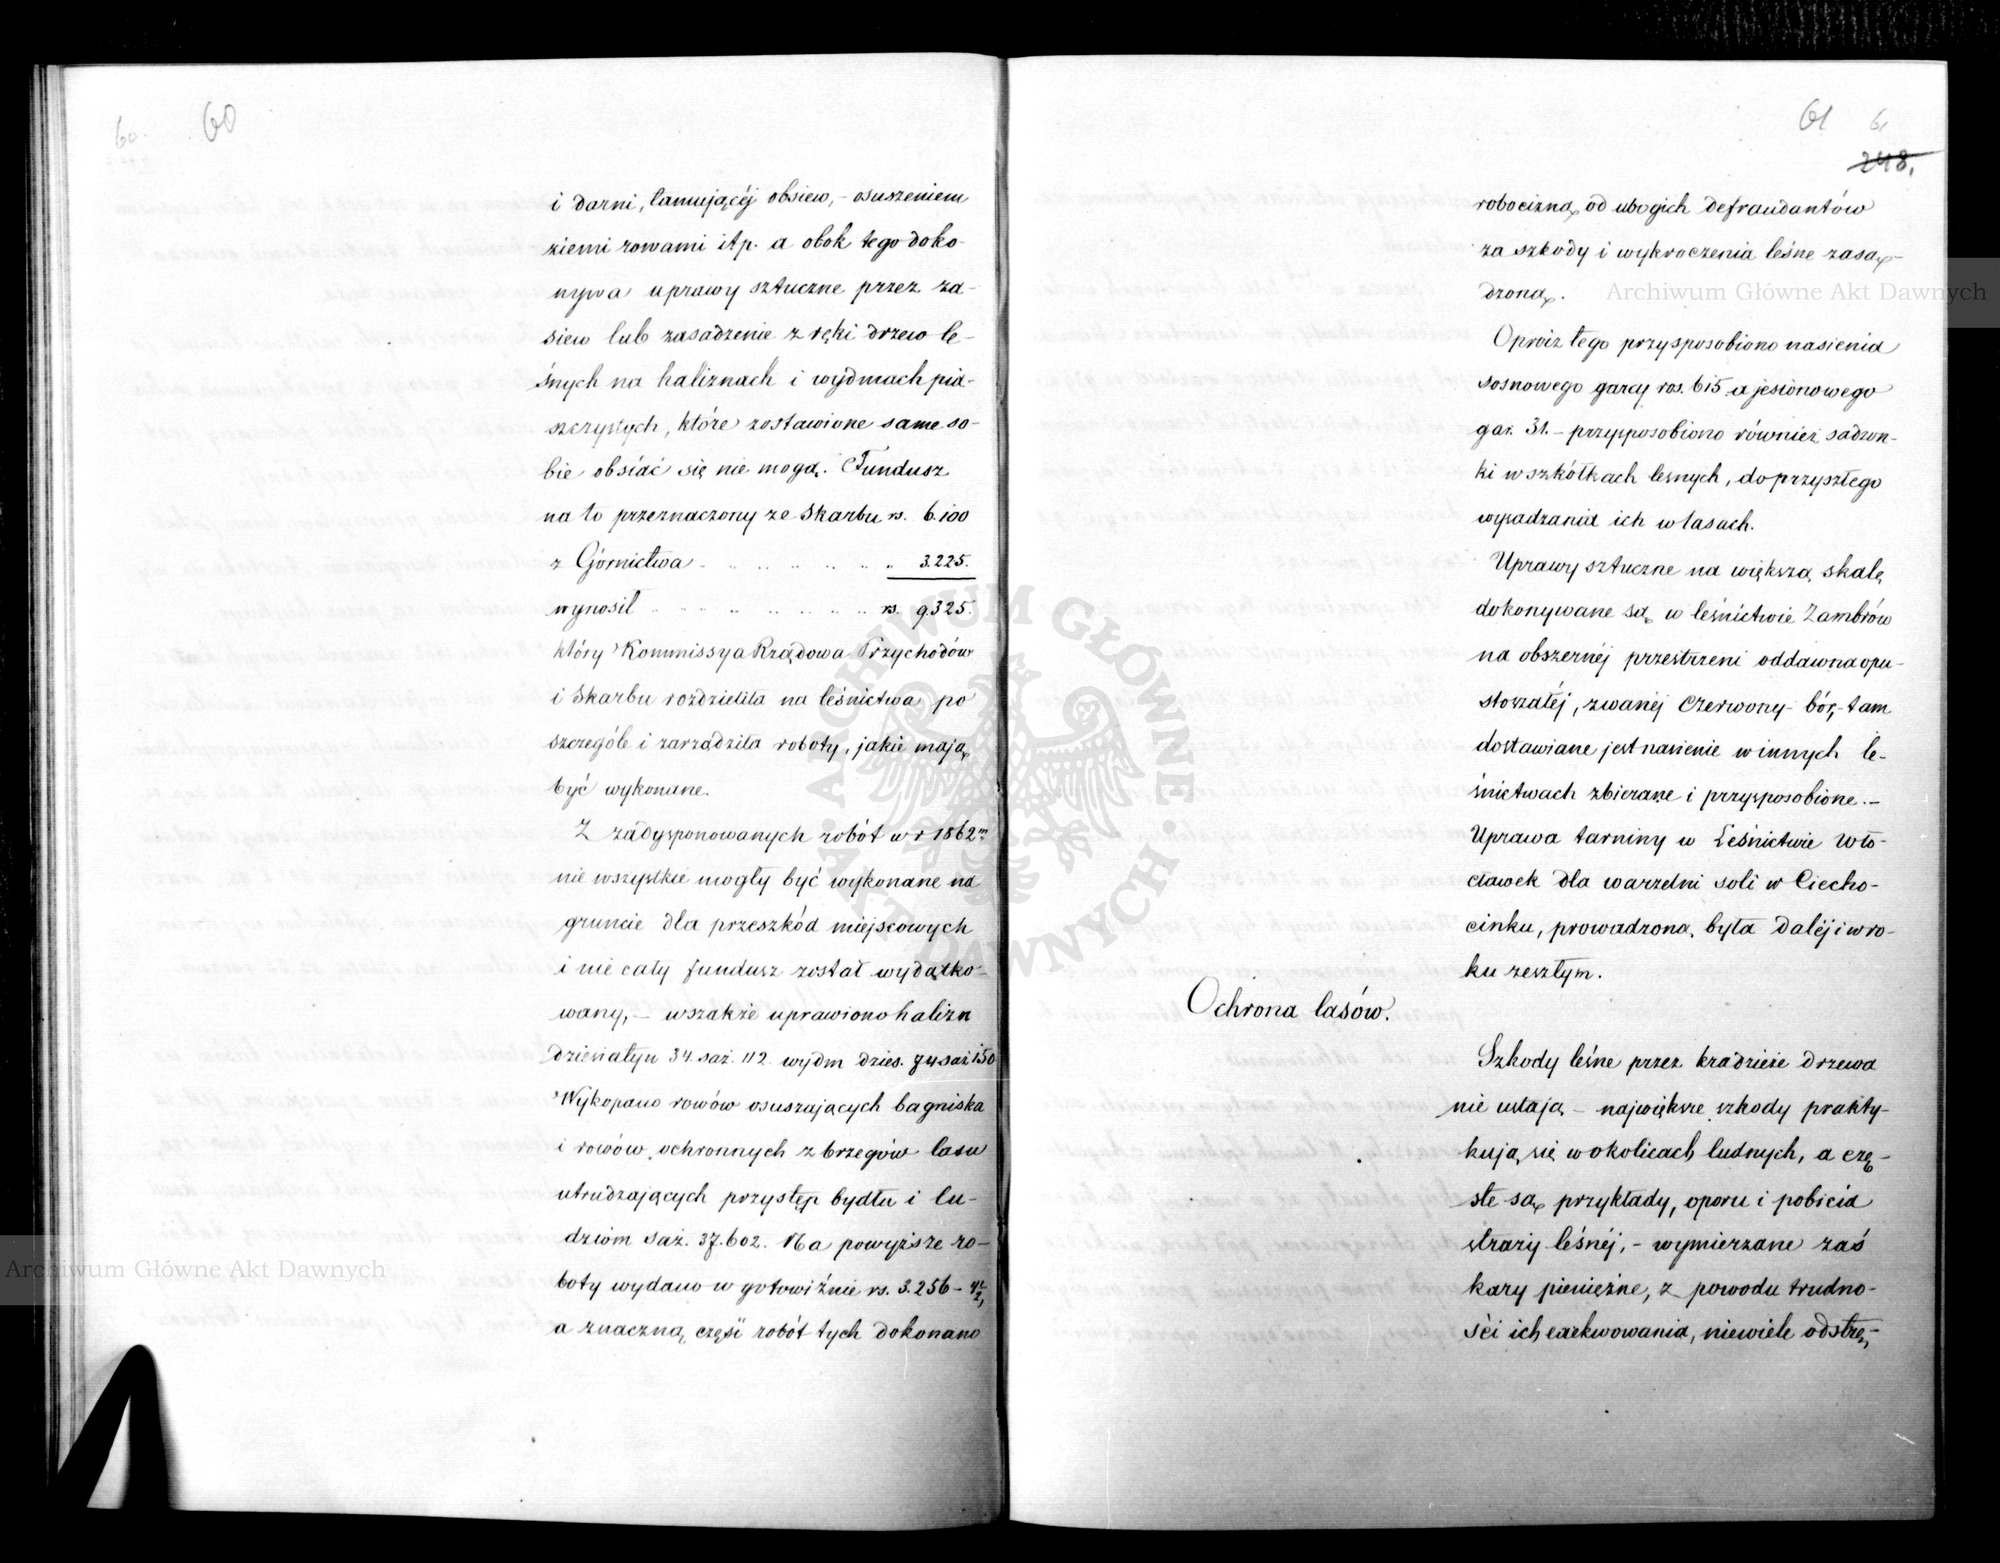 60. 60
i darni, tamującéj obsiew, – osuszeniem
ziemi rowami itp. a obok tego doko-
nywa uprawy sztuczne przez za-
siew lub zasadzenie z ręki drzew le-
śnych na haliznach i wydmach pia-
szczystych, które zostawione same so-
bie obsiać się nie mogą. Fundusz
na to przeznaczony ze Skarbu rs. 6.100
z Górnictwa . . . . . . „ 3.225.
wynosił . . . . . . . rs. 9.325.
który Kommissya Rządowa Przychodów
i Skarbu rozdzieliła na leśnictwa po
szczególe i zarządziła roboty, jakie mają
być wykonane.
Z zadysponowanych robót w r 1862m
nie wszystkie mogły być wykonane na
gruncie dla przeszkód miejscowych
i nie cały fundusz został wydatko-
wany, – wszakże uprawiono halizn
dziesiatyn 34. saż. 112. wydm dzies. 74 saż 150
Wykopano rowów osuszających bagniska
i rowów ochronnych z brzegów lasu
utrudzających przystęp bydłu i lu-
dziom saż. 37.602. Na powyższe ro-
boty wydano w gotowiźnie rs. 3.256 – 4½,
a znaczną część robót tych dokonano
61 61
248.
robocizną od ubogich defraudantów
za szkody i wykroczenia leśne zasą-
dzoną.
Oprócz tego przysposobiono nasienia
sosnowego garcy ros. 615 a jesionowego
gar. 31. – przysposobiono również sadzon-
ki w szkółkach leśnych, do przyszłego
wysadzania ich w lasach.
Uprawy sztuczne na większą skalę
dokonywane są w leśnictwie Zambrów
na obszernéj przestrzeni oddawna opu-
stoszałéj, zwanéj Czerwony-bór, – tam
dostawiane jest nasienie w innych le-
śnictwach zbierane i przysposobione. –
Uprawa tarniny w Leśnictwie Wło-
cławek dla warzelni soli w Ciecho-
cinku, prowadzoną była daléj i w ro-
ku zeszłym.
Ochrona lasów.
Szkody leśne przez kradzieże drzewa
nie ustają – największe szkody prakty-
kują się w okolicach ludnych, a czę-
ste są przykłady, oporu i pobicia
straży leśnéj, – wymierzane zaś
kary pieniężne, z powodu trudno-
ści ich exekwowania, niewiele odstrę-
Archiwum Główne Akt Dawnych
Archiwum Główne Akt Dawnych
ARCHIWUM GŁÓWNE AKT DAWNYCH